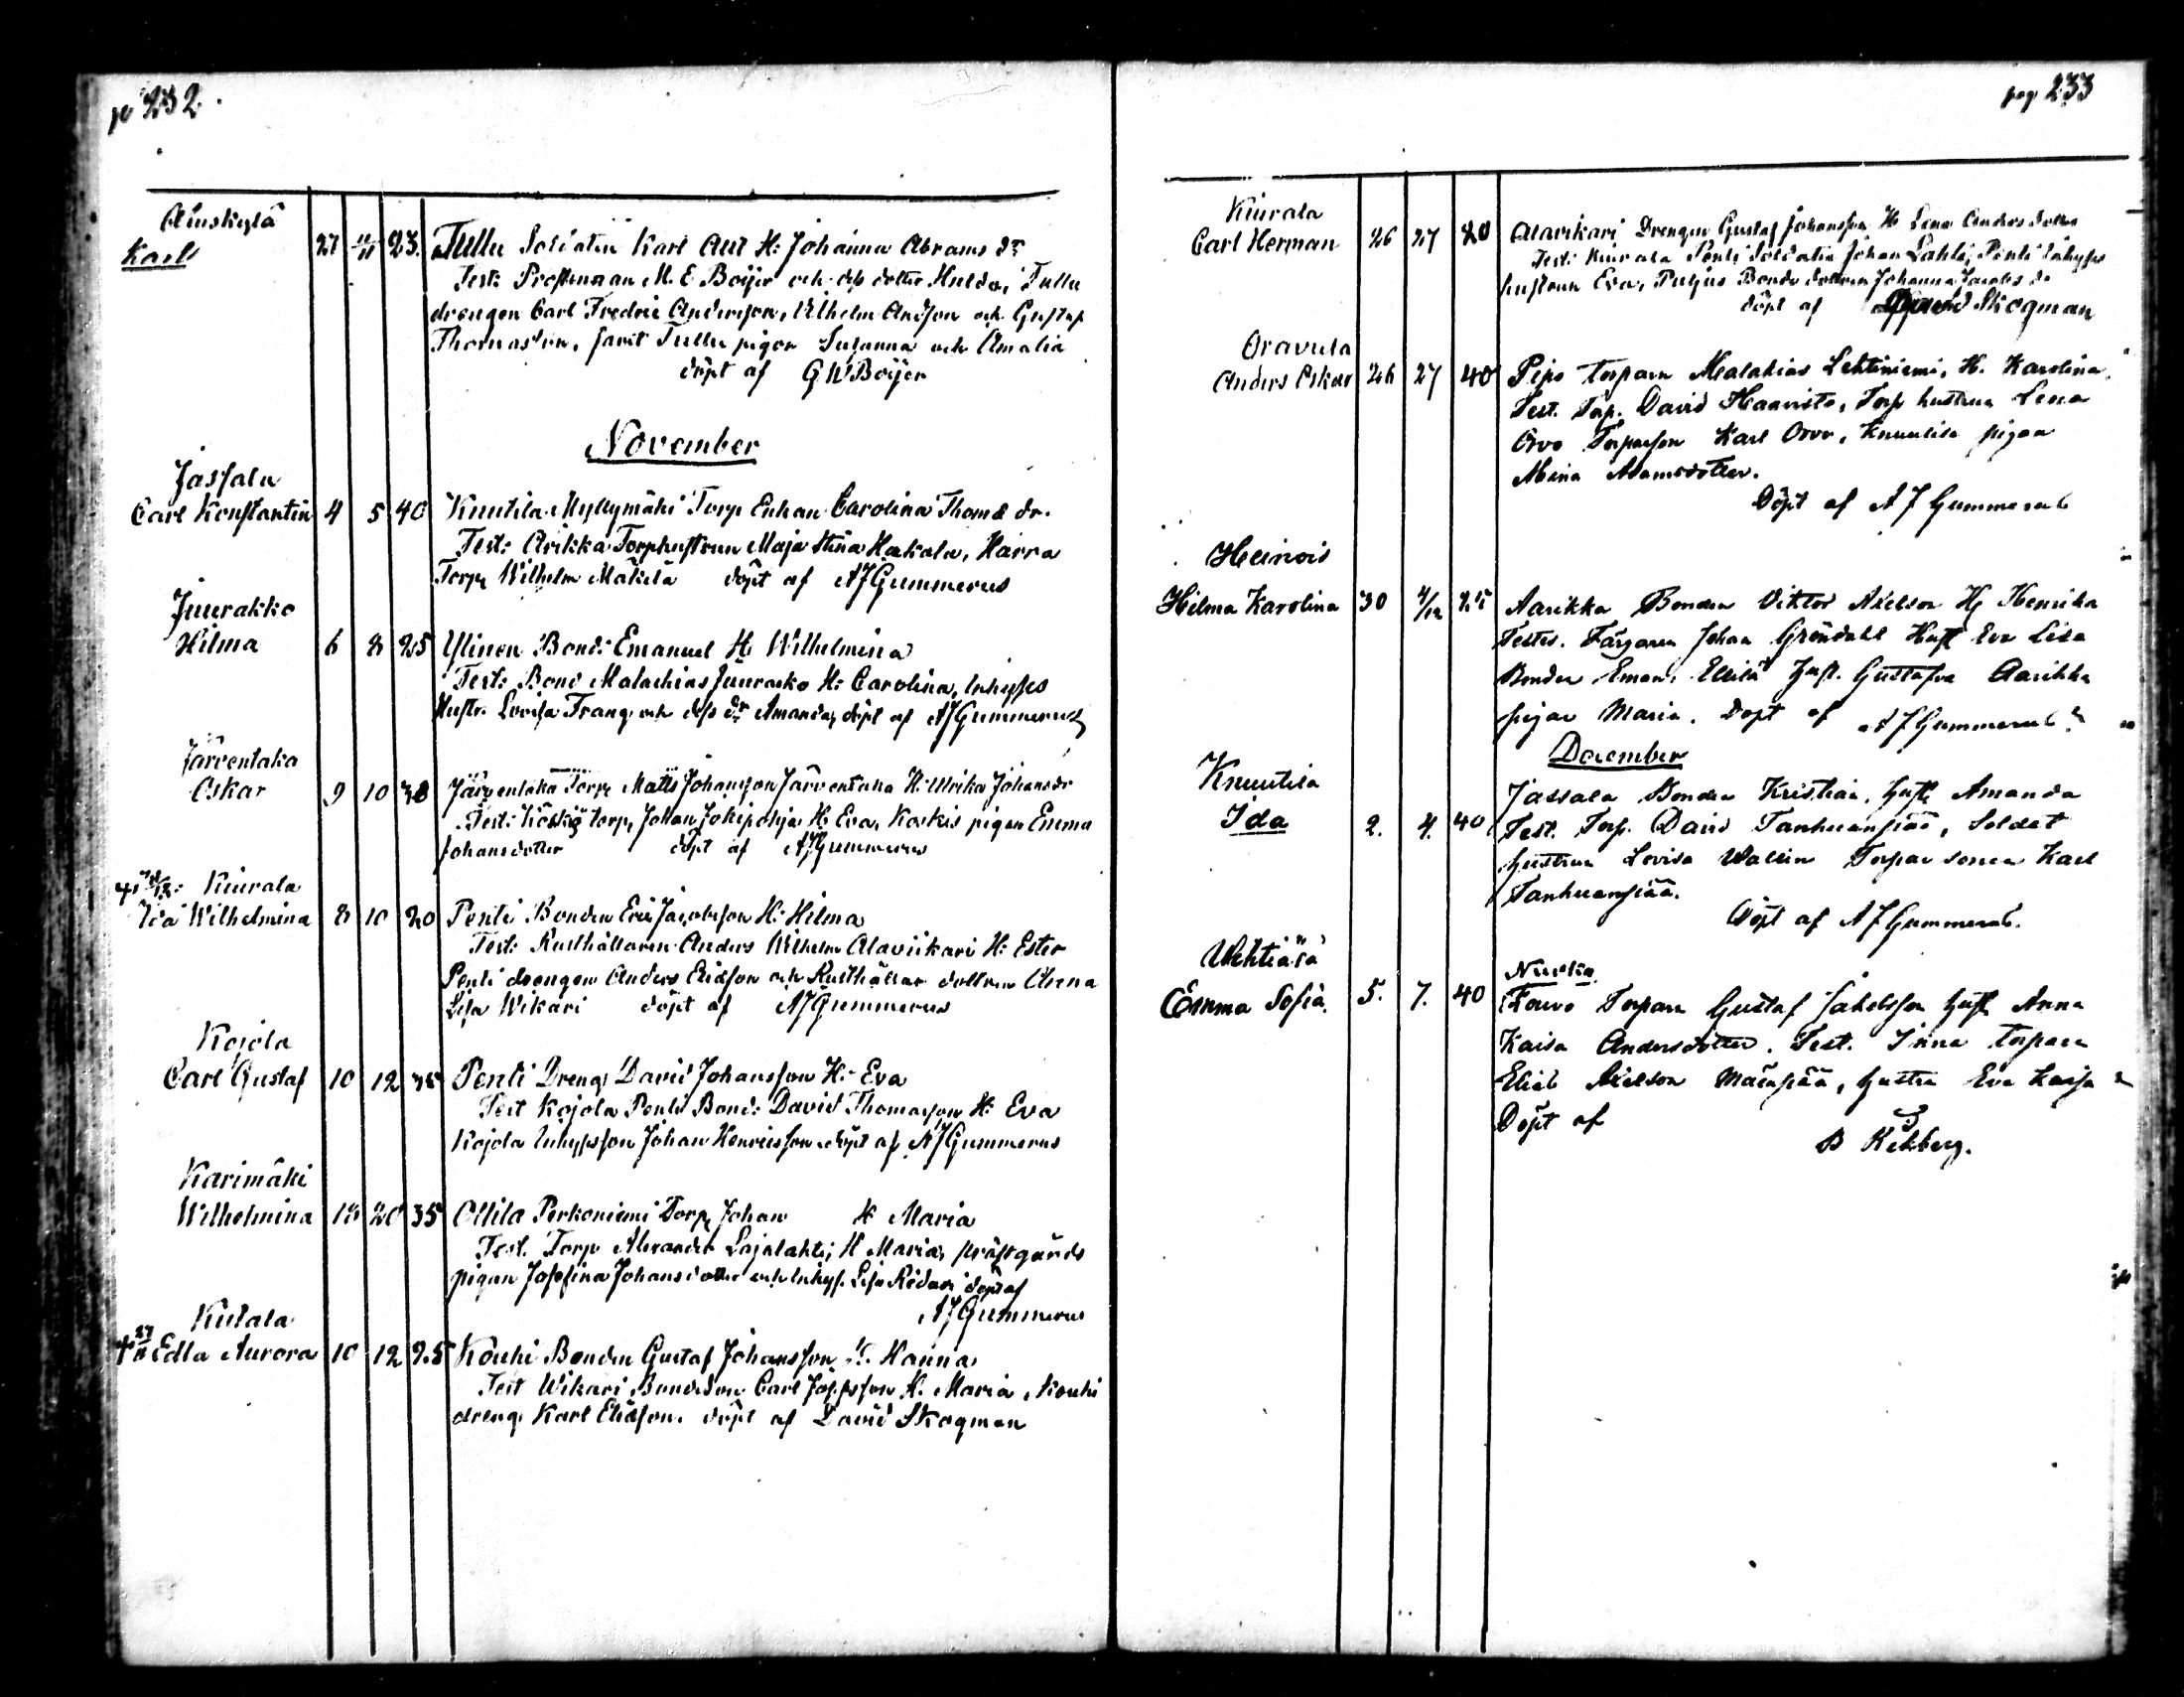 p 232.
Ainskylä
Karl 27 11 23. Tullu Soldaten Karl Ant H: Johanna Abrams dr
Test: M. E. Boijer och dess dotter Hulda, Tullu
drengen Carl Fredric Andersson, Vilhelm Andsson och Gustaf
Thomasson, samt Tullu pigor Susanna och Amalia
döpt af G W Boijer
November
Jassala
Carl Konstantin 4 5 40 Knutila Myllymäki Torp Enkan Carolina Thomæ dr.
Test: Arikka Torphustrun Maja Stina Hakala, Harra
Torp Wilhelm Mäkelä döpt af A J Gummerus
Juurakko
Hilma 6 8 25 Ylinen Bond: Emanuel H: Wilhelmina
Test: Bond Malachias Juurakko H: Carolina, Inhyses
Hustr. Lovisa Frang och dess dr Amanda, döpt af A J Gummerus
Järventaka
Oskar 9 10 38 Järventaka Torp Matts Johansson Järventaka H: Ulrika Johansdr
Test: torp, Johan Jokipohja H: Eva, Koskis pigan Emma
Johansdotter döpt af A J Gummerus
Kiurala
Ida Wilhelmina 8 10 20 Penti Bonden Eric Jacobsson H: Hilma
Test: Rusthållaren Anders Wilhelm Alaviikari H: Ester
Penti drengen Anders Ericsson och Rusthållar dottren Anna
Lisa Wikari döpt af A J Gummerus
Kojola
Carl Gustaf 10 12 35 Penti Dreng: David Johansson H: Eva
Test Kojola Penti Bond: David Thomasson H: Eva
Kojola Inhyssson Johan Henricsson döpt af A J Gummerus
Karimäki
Wilhelmina 18 20 35 Ollila Perkoniemi Torp Johan H Maria
Test. Torp Alexander Lajalahti, H Maria, prästgårds
pigan Josefina Johansdotter och Inhys. Lisa döpt af
A J Gummerus
Kutala
Edla Aurora 10 12 25 Kouhi Bonden Gustaf Johansson H. Hanna
Test Wikari Bondeson Carl Josefsson H. Maria, Kouhi
dreng Karl Eliasson. döpt af David Skogman
pag 233
Kiurala
Carl Herman 26 27 20 Alavikari Drengen Gustaf Johansson H Lena Anders dotter
Test: Kiurala Penti Soldaten Johan Lahti, Penti Inhyses
hustrun Eva, Bonde dottren Johanna Jacobs dr
döpt af David Skogman
Oravula
Anders Oskar 26 27 40 Pipo torparn Malakias Lehtiniemi, H. Karolina
Test. Torp. David Haavisto, Torp hustrun Lena
Orvo Torparson Karl Orvo, Knuutila pigan
Mina Adamsdotter.
Döpt af A J Gummerus
Heinois
Hilma Karolina 30 4/12 25 Aarikka Bonden Viktor Axelson H Henrika
Testes. Färgaren Johan Gröndahl Hust Eva Lisa
Bonden Eman. Ellilä Hust. Gustafva Aarikka
pigan Maria. Döpt af A J Gummerus
December
Knuutila
Ida 2. 4. 40 Jassala Bonden Kristian, Hust Amanda
Test. Torp. David Tanhuanpää, Soldat
hustrun Lovisa Wallin Torpar sonen Karl
Tanhuanpää.
Döpt af A J Gummerus.
Wehtiälä
Nuoka
Emma Sofia. 5. 7. 40 Torparn Gustaf Jakobsson Hust Anna
Kaisa Andersdotter. Test. torparn
Elias Axelson Mäenpää, hustru Eva Kaisa
Döpt af
B Rehberg.